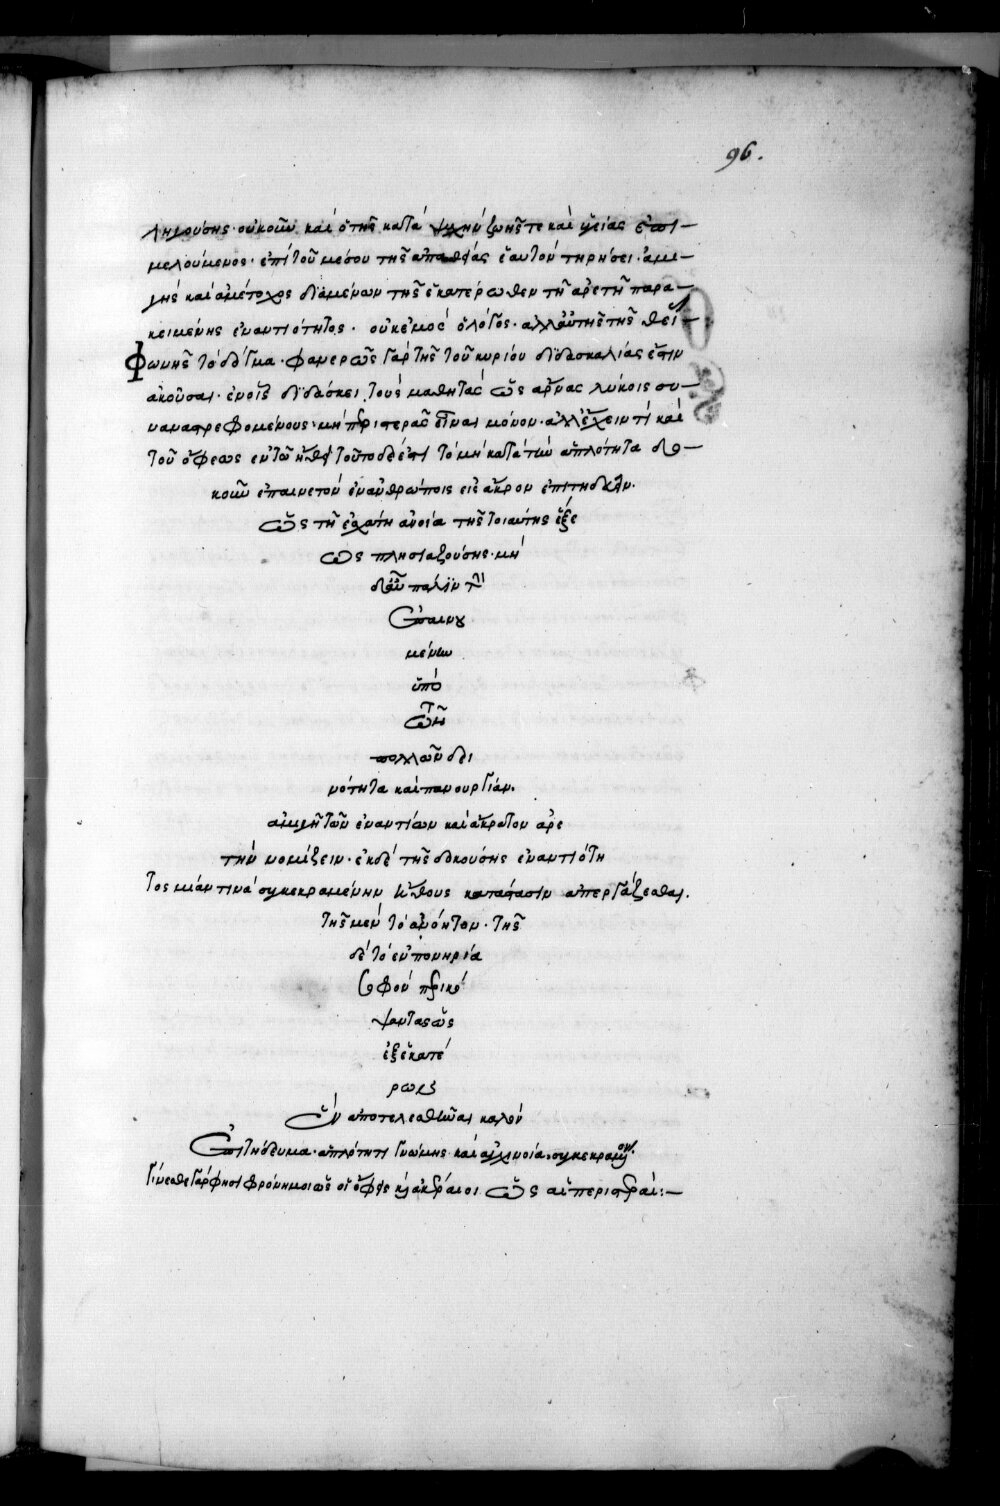 96.
ληγούσης· οὐκοῦν καὶ ὁ τῆς κατὰ ψυχὴν ζωῆς τε καὶ ὑγείας ἐπι-
μελούμενος· ἐπὶ τοῦ μέσου τῆς ἀπαθείας ἑαυτὸν τηρήσει· ἀμι-
γὴς καὶ ἀμέτοχος διαμένων τῆς ἑκατέρωθεν τῇ ἀρετῇ παρα-
κειμένης ἐναντιότητος· οὐκ ἐμὸς ὁ λόγος· ἀλλ' αὐτῆς τῆς θεί-
φωνῆς τὸ δόγμα· φανερῶς γὰρ τῆς τοῦ κυρίου διδασκαλίας ἔστιν
ἀκοῦσαι· ἐν οἷς διδάσκει τοὺς μαθητὰς ὡς ἄρνας λύκοις συ-
ναναστρεφομένους· μὴ περιστερὰς εἶναι μόνον· ἀλλ' ἔχειν τί καὶ
τοῦ ὄφεως ἐν τῷ ἤθει τοῦτο δέ ἐστι τὸ μὴ κατὰ τὴν ἁπλότητα δο-
κοῦν ἐπαινετὸν ἐν ἀνθρώποις εἰς ἄκρον ἐπιτηδεύειν·
ὡς τῇ ἐσχάτῃ ἀνοίᾳ τῆς τοιαύτης ἕξε
ως πλησιαζούσης· μὴ
δ' αὖ πάλιν τὴν
ἐπαινου
μένην
ὑπὸ
τῶν
πολλῶν δει
νότητα καὶ πανουργίαν·
ἀμιγῆ τῶν ἐναντίων καὶ ἄκρατον ἀρε
τὴν νομίζειν· ἐκ δὲ τῆς δοκούσης ἐναντιότη
τος μίαν τινὰ συγκεκραμένην ἤθους κατάστασιν ἀπεργάζεσθαι·
τῆς μὲν τὸ ἀνόητον· τῆς
δὲ τὸ ἐν πονηρίᾳ
σοφὸν περικό
ψαντας ὡς
ἐξ ἑκατέ
ρως
ἓν ἀποτελεσθῆναι καλὸν
ἐπιτήδευμα· ἁπλότητι γνώμης καὶ ἀγχινοίᾳ συγκεκραμένον·
γίνεσθε γάρ φησι φρόνιμοι ὡς οἱ ὄφεις καὶ ἀκέραιοι ὡς αἱ περιστεραί:—